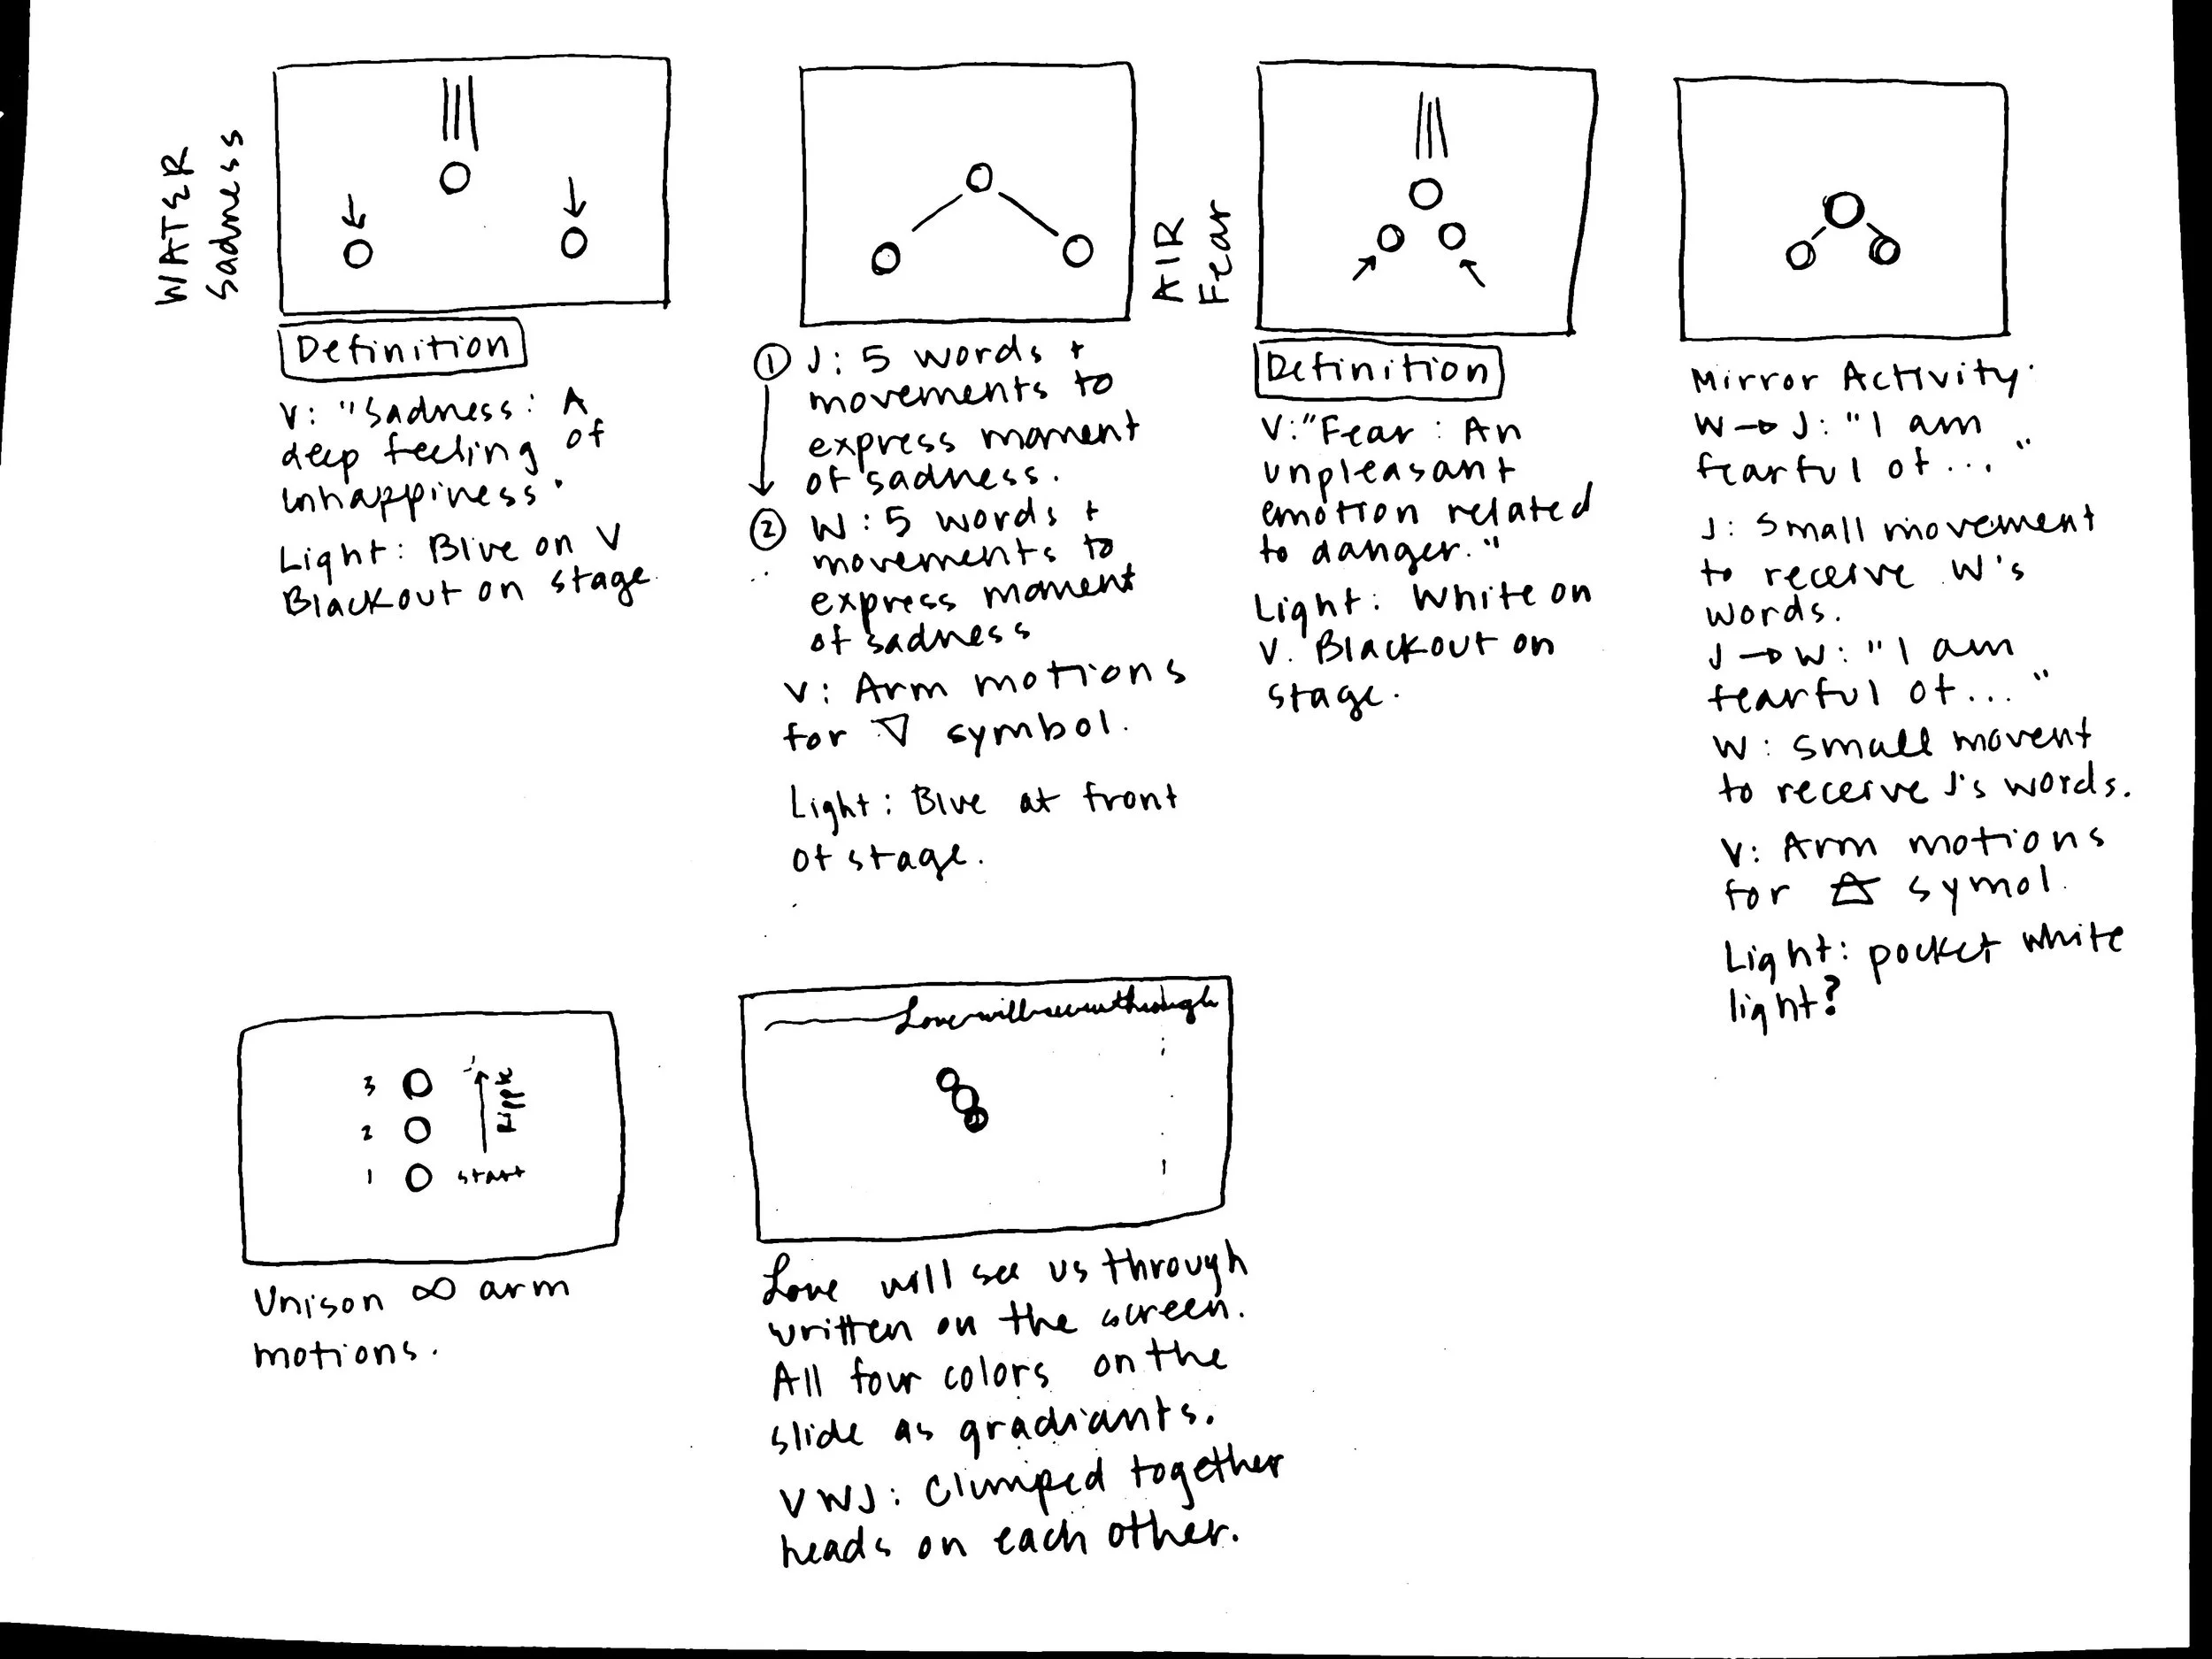 WATER
Sadness
Definition
V: "Sadness: A
deep feeling of
unhappiness"
Light: Blue on V
Blackout on stage
① J: 5 words +
movements to
express moment
of sadness.
② W: 5 words +
movements to
express moment
of sadness
V: Arm motions
for ▽ symbol.
Light: Blue at front
of stage.
AIR
Fear
Definition
V: "Fear: An
unpleasant
emotion related
to danger."
Light: White on
V. Blackout on
stage.
Mirror Activity:
W → J: "I am
fearful of..."
J: Small movement
to receive W's
words.
J → W: "I am
fearful of..."
W: small movent
to receive J's words.
V: Arm motions
for 🜁 symol.
Light: pocket white
light?
3
2
1 start
Ripple
Unison ∞ arm
motions.
Love will see us through
Love will see us through
written on the screen.
All four colors on the
slide as gradiants.
VWJ: Clumped together
heads on each other.